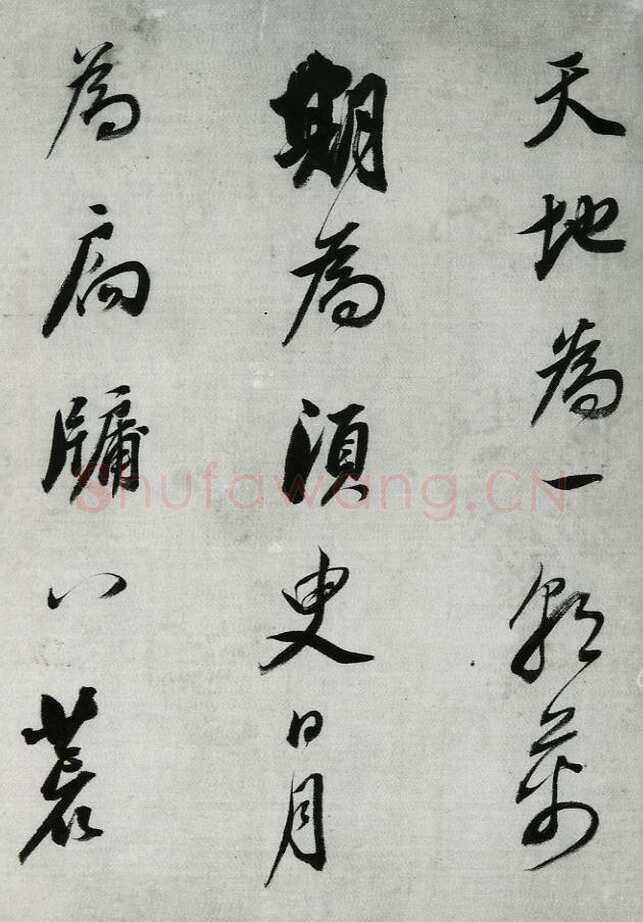 天地為一朝萬
期為須臾日月
為扃牖八荒
Shufawang.CN